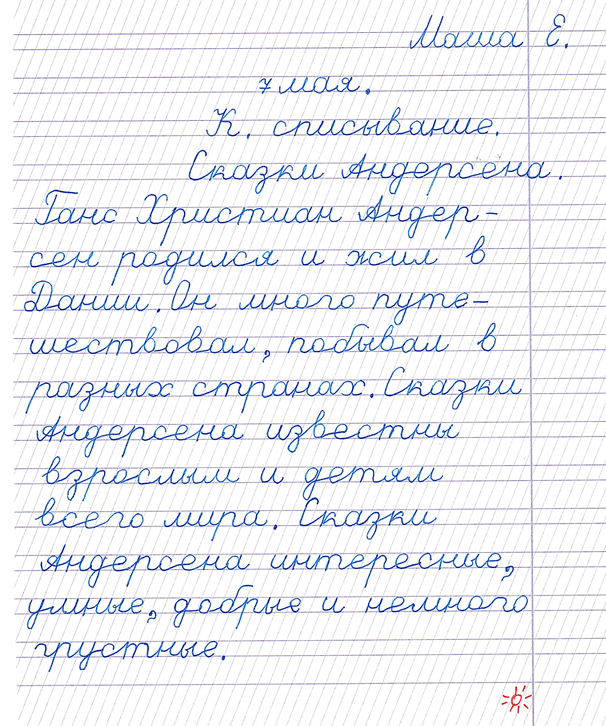 Маша Е.
7 мая.
К. списывание.
Сказки Андерсена.
Ганс Христиан Андер-
сен родился и жил в
Дании. Он много путе-
шествовал, побывал в
разных странах. Сказки
Андерсена известны
взрослым и детям
всего мира. Сказки
Андерсена интересные,
умные, добрые и немного
грустные.